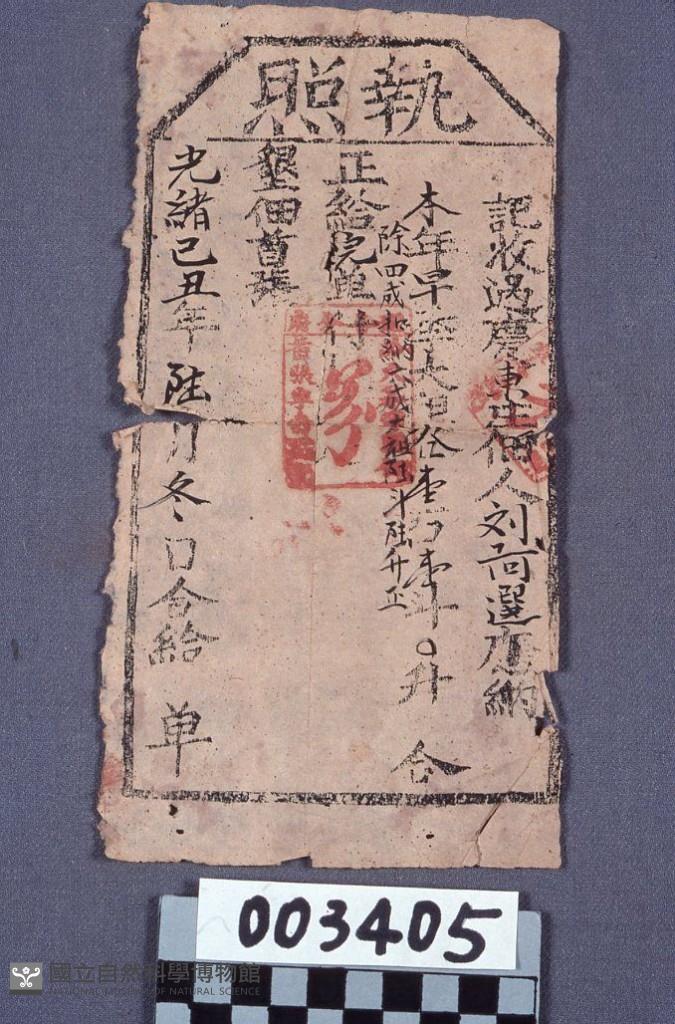 執照
記收過慶東庄佃人刘阿選應納
本年早 大 租壹石壹斗〇升 合
除四成扣納六成大租陸斗陸升正
正給完單 付
墾佃首張
光緒己丑年陸月冬 日合給 单
003405
國立自然科學博物館
NATIONAL MUSEUM OF NATURAL SCIENCE